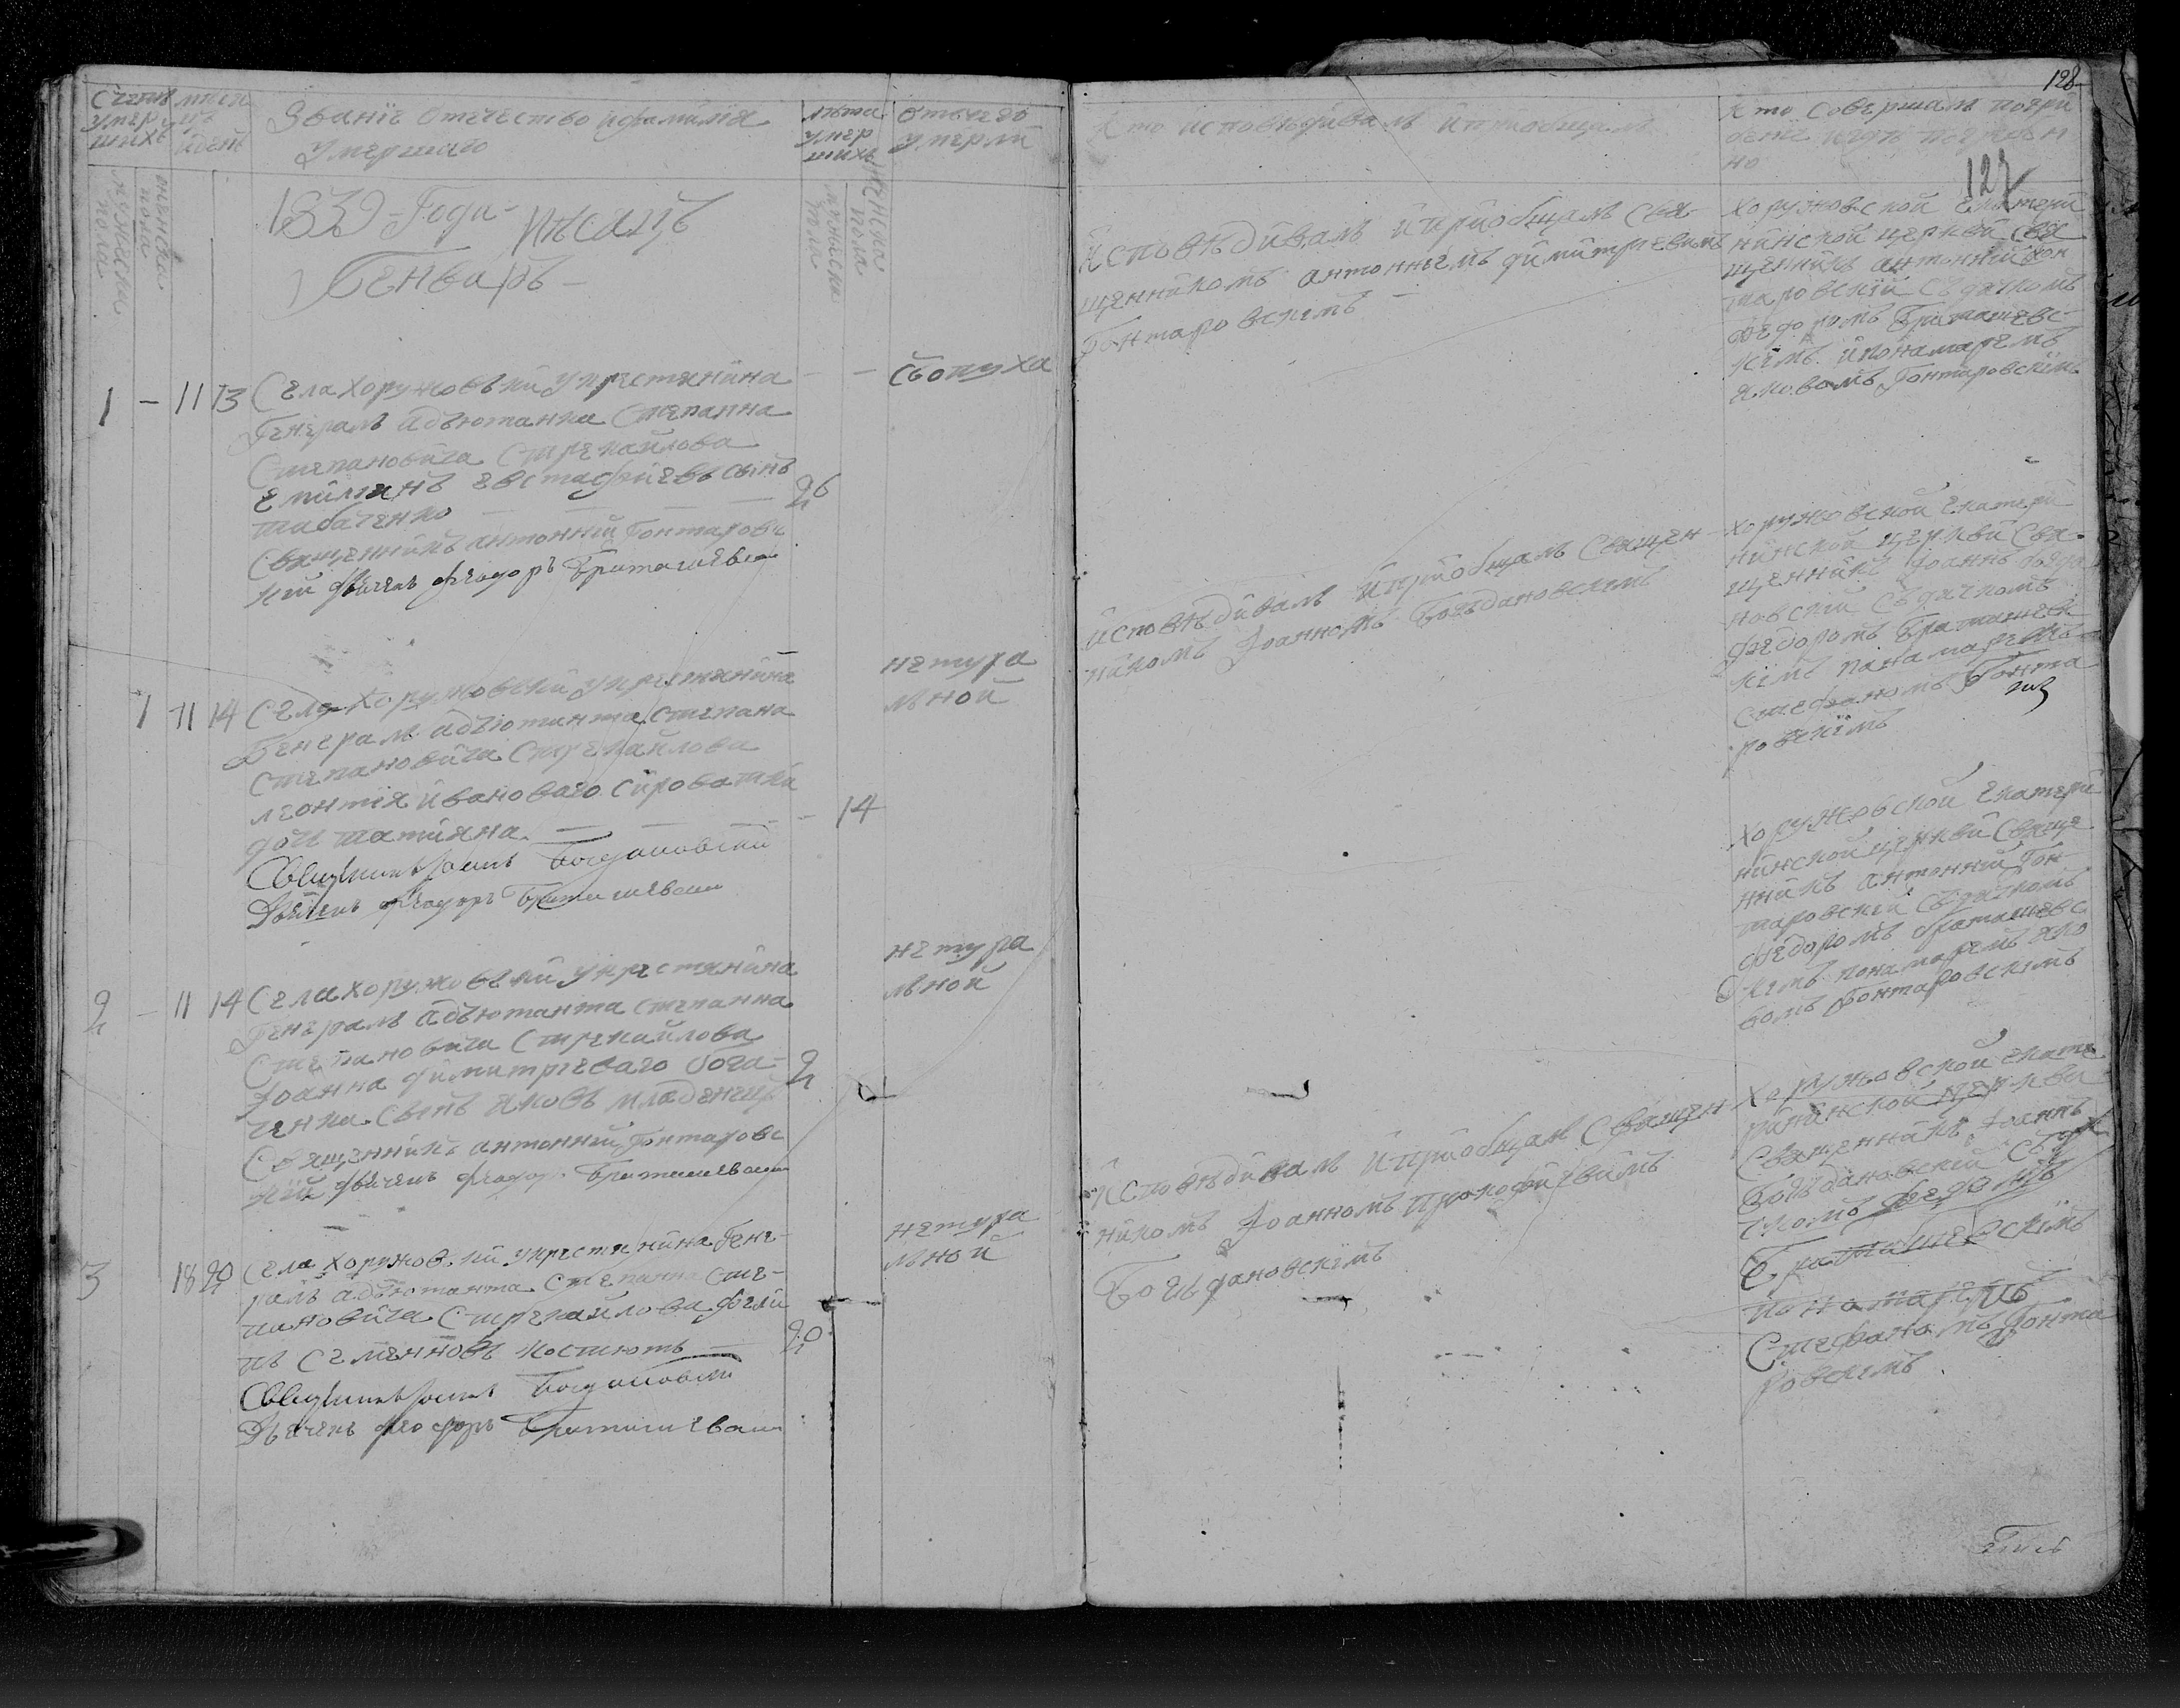 Счетъ умер шихъ
мужеска пола
женска пола
Званїе отечество ифамилїя
умершаго
лѣта умер шихъ
мужеска пола
женска пола
отчего
умерли
1839 Года мѣсяцъ
Генварь
1 - 11 13 Села Хоружовкиукрестянина
Генералъ адъютанта Степанна
Степановича Стрекайлова
емилїянъ евстафїевъ сынъ
табаченко 26
Священникъ антоннїй Гонтаровс
кїй дьячекъ Феодоръ Браташевскїй
Сбопуха
1 11 14 Села Хоружовкиукрестянина
Генералъ адъютанта Степана
Степановича Стрекайлова
леонтїя ивановаго сироватки
дочь татїяна - 14
Священникъ Іоаннъ Богдановскій
Дьячекъ Феодоръ Браташевскій
нетура
льной
2 - 11 14 Села Хоружовкиукрестянина
Генералъ адъютанта Степанна
Степановича Стрекайлова
Іоанна димитрїеваго бога-
ченка сынъ яковъ младенецъ 2
Священникъ антоннїй Гонтаровс
кїй дьячекъ Феодоръ Браташевскій
нетура
льной
3 18 20 Села Хоружовкиукрестянина Гене-
ралъ адъютанта Степанна Сте-
пановича Стрекайлова
Семенновъ Костютъ 20
Священникъ Іоаннъ Богдановскій
Дьячекъ Феодоръ Браташевскій
нетура
льной
128
Кто исповѣдивалъ ипрїобщалъ
Кто Совершалъ погри
бенїе игдѣ погребен
но
127
Исповѣдивалъ ипрїобщалъ Свя-
щенникомъ антоннїемъ димитрїевимъ
Гонтаровскимъ -
Хоружовской екатери
нинской церкви Свя
щенникъ антоннїй Гон
таровскїй Сдячкомъ
Федоромъ Браташевс-
кимъ ипонамаремъ
яковомъ Гонтаровскїмъ
исповѣдивалъ ипрїобщалъ Священ-
никомъ Іоанномъ Богъдановскимъ
Хоружовской екатери
нинской церкви Свя-
щенникъ Іоаннъ
новскїй Сдячкомъ
Федоромъ Браташевс
кїмъ панамаремъ
Стефаномъ Гонта
ровскїмъ
Хоружовской екатери
нинской церкви Свяще
нникъ антоннїй Гон
таровскїй Сдячкомъ
Федоромъ браташевс
кимъ понамаремъ яко
вомъ Гонтаровскимъ
Исповѣдивалъ ипрїобщалъ Священ-
никомъ Іоанномъ прокофїевимъ
Богъдановскїмъ
Хоружовской екате
рининской церкви
Священникъ Іоаннъ
Богъдановскїй Съдя
чкомъ Федоромъ
Браташевскїмъ
понамаремъ
Стефаномъ Гонта
ровскимъ